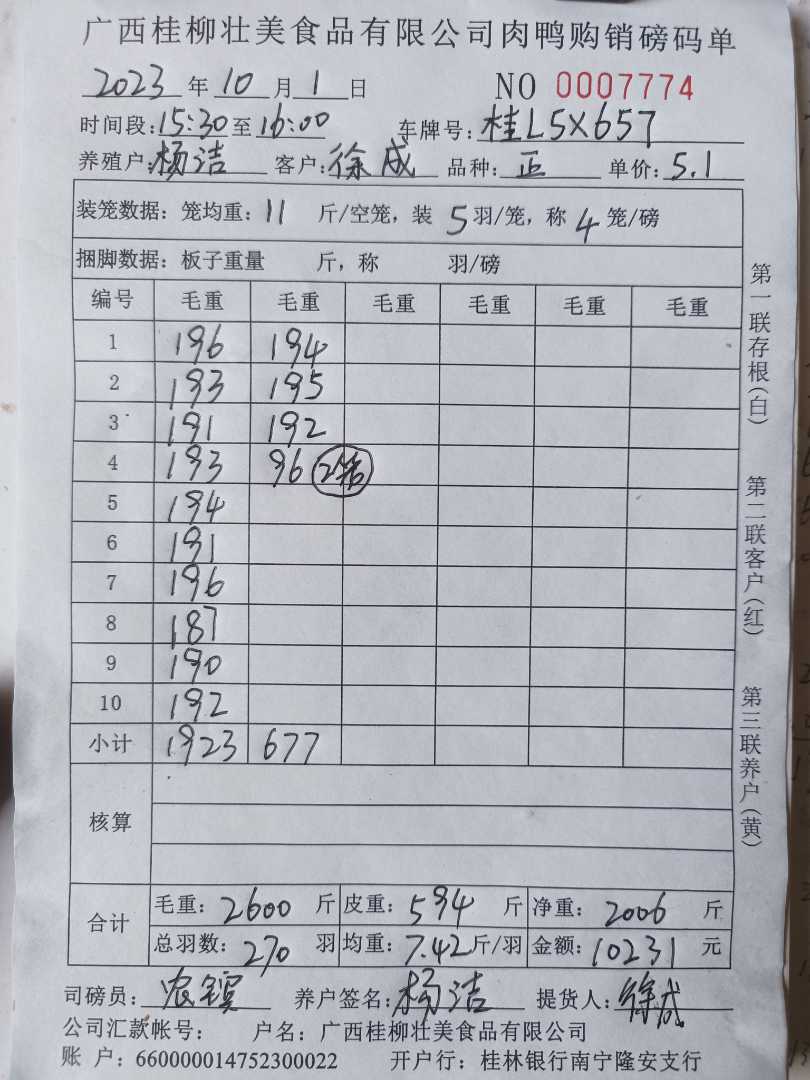 广西桂柳壮美食品有限公司肉鸭购销磅码单
2023 年 10 月 1 日 NO 0007774
时间段：15:30 至 16:00 车牌号：桂L5X657
养殖户：杨洁 客户：徐成 品种：正 单价：5.1
装笼数据：笼均重：11 斤/空笼，装 5 羽/笼，称 4 笼/磅
捆脚数据：板子重量 斤，称 羽/磅
编号 毛重 毛重 毛重 毛重 毛重 毛重
1 196 194
2 193 195
3 191 192
4 193 96 2笼
5 194
6 191
7 196
8 187
9 190
10 192
小计 1923 677
核算
合计 毛重：2600 斤 皮重：594 斤 净重：2006 斤
总羽数：270 羽 均重：7.42 斤/羽 金额：10231 元
司磅员：农 养户签名：杨洁 提货人：徐成
公司汇款帐号： 户名：广西桂柳壮美食品有限公司
账 户：660000014752300022 开户行：桂林银行南宁隆安支行
第一联存根（白）
第二联客户（红）
第三联养户（黄）